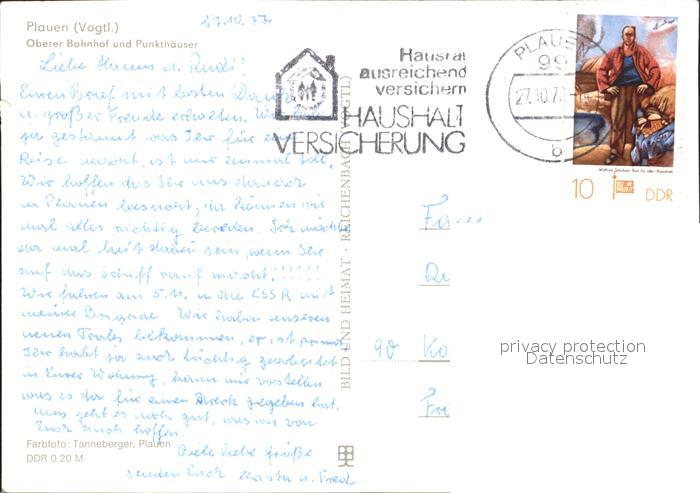 27.10.77
Plauen (Vogtl.)
Oberer Bahnhof und Punkthäuser
Liebe Hanna u. Rudi!
Euren Brief mit besten Dank
u. großer Freude erhalten.
ja gestaunt was Ihr für
Reise macht, ist mir einmal toll.
Wir hoffen das Ihr uns
in Plauen besucht, da können wir
mal alles richtig bereden. Ich möchte
da mal mit dabei sein, wenn Ihr
auf das Schiff rauf macht!!!!!!
Wir fahren am 5.11. in die ČSSR mit
meiner Brigade. Wir haben unseren
neuen Trabi bekommen, er ist prima
Ihr habt ja auch tüchtig gearbeitet
in Eurer Wohnung, kann mir vorstellen
was es da für einen Dreck gegeben hat,
uns geht es noch gut, was wir von
Euch auch hoffen.
Viele liebe Grüße
senden Euch u. Fred
Farbfoto: Tanneberger, Plauen
DDR 0,20 M
BILD UND HEIMAT · REICHENBACH (VOGTL)
Hausrat
ausreichend
versichern
HAUSHALT
VERSICHERUNG
PLAUEN
99
27.10.7
b
10
DDR
Fa
90 Ko
privacy protection
Datenschutz